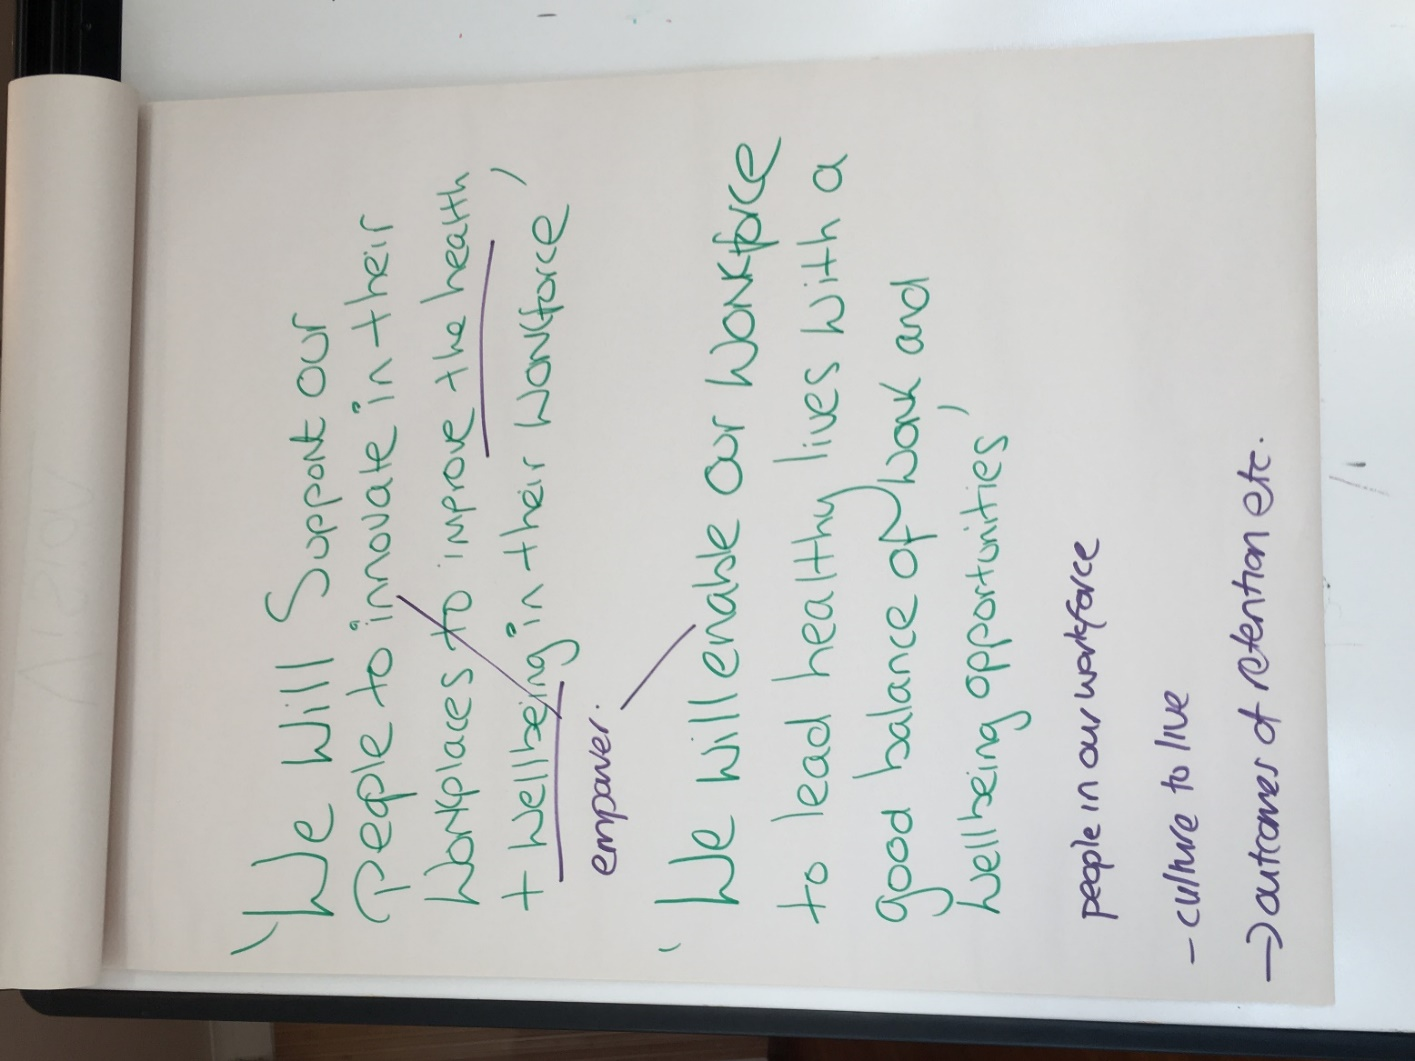 'We will Support our
people to innovate in their
workplaces to improve the health
+ wellbeing in their workforce'
empower.
'We will enable our workforce
to lead healthy lives with a
good balance of work and
wellbeing opportunities'
people in our workforce
- culture to live
→ outcomes of retention etc.